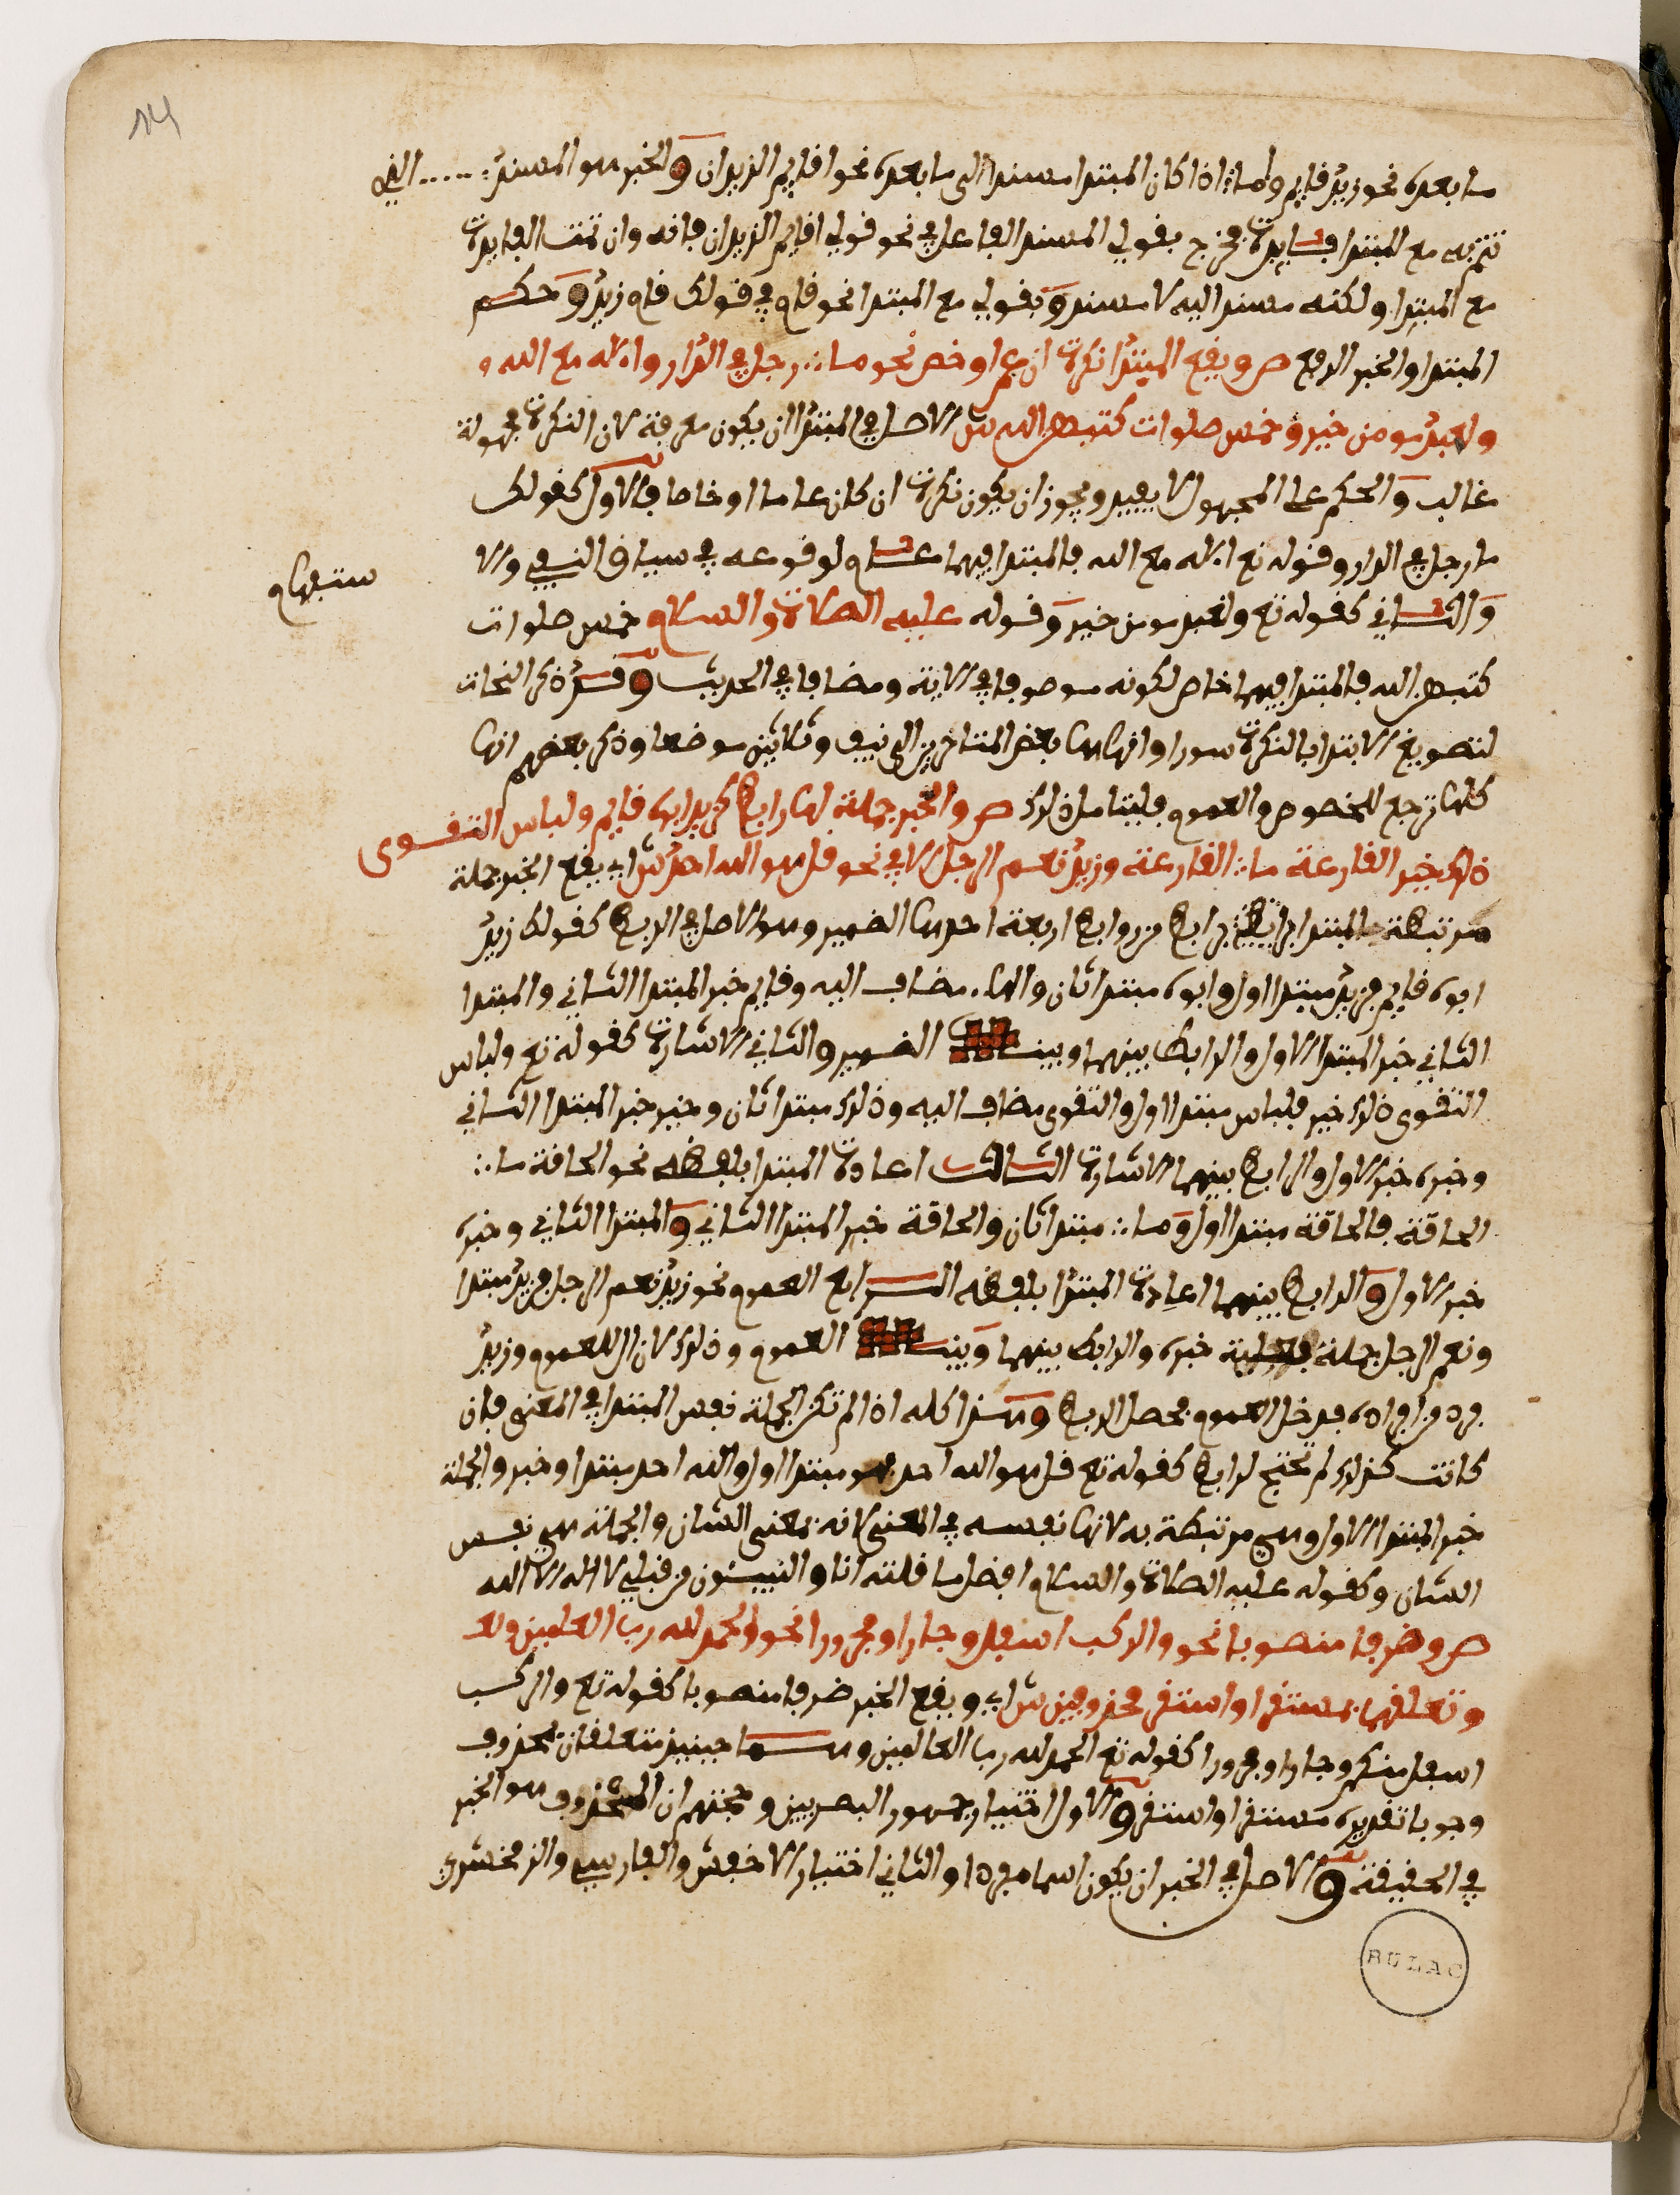 ما بعده نحو زيد قايم وأما اذا كان المبتدا مسندا الى ما بعده نحو اقايم الزيدان والخبر هو المسند الذي
تتم به مع المبتدا فايدة فخرج بقولي المسند الفاعل في نحو قولي اقايم الزيدان فانه وان تمت الفايدة
مع المبتدا ولكنه مسند اليه لا مسند وبقولي مع المبتدا نحو قام في قولك قام زيد وحكم
المبتدا والخبر الرفع ص ويقع المبتدا نكرة ان عم او خص نحو ما رجل في الدار واءله مع الله و
ولعبد مومن خير وخمس صلوات كتبهن الله ش الاصل في المبتدا ان يكون معرفة لان النكرة مجهولة
غالب والحكم على المجهول لا يفيد ويجوز ان يكون نكرة ان كان عاما او خاصا فالاول كقولك
ما رجل في الدار وقوله تع اءله مع الله فالمبتدا فيهما عام لوقوعه في سياق النفي والا
ستفهام
والثاني كقوله تع ولعبد مومن خير وقوله عليه الصلاة والسلام خمس صلوات
كتبهن الله فالمبتدا فيهما خاص لكونه موصوفا في الاية ومضافا في الحديث وقد ذكر النحات
لتصويغ الابتدا بالنكرة سورا وانهاها بعض المتاخرين الى نيف وثلاثين موضعا وذكر بعضهم انها
كلها ترجع للخصوص والعموم فليتامل ذلك ص والخبر جملة لها رابط كزيد ابوه قايم ولباس التقوى
ذلك خير القارعة ما القارعة وزيد نعم الرجل الا في نحو قل هو الله احد ش اي يقع الخبر جملة
مرتبطة بالمبتدا برابط من روابط اربعة احدها الضمير وهو الاصل في الربط كقولك زيد
ابوه قايم فزيد مبتدا اول وابوه مبتدا ثان والهاء مضاف اليه وقايم خبر المبتدا الثاني والمبتدا
الثاني خبر المبتدا الاول والرابط بينهما وبين الضمير والثاني الاشارة كقوله تع ولباس
التقوى ذلك خير فلباس مبتدا اول والتقوى مضاف اليه وذلك مبتدا ثان وخير خبر المبتدا الثاني
وخبره خبر الاول والرابط بينهما الاشارة الثالث اعادة المبتدا بلفظه نحو الحاقة ما
الحاقة فالحاقة مبتدا اول وما مبتدا ثان والحاقة خبر المبتدا الثاني والمبتدا الثاني وخبره
خبر الاول والرابط بينهما اعادة المبتدا بلفظه الرابع العموم نحو زيد نعم الرجل فزيد مبتدا
ونعم الرجل جملة فعلية خبره والرابط بينهما وبين العموم وذلك لان ال للعموم وزيد
فرد من افراده فدخل العموم فحصل الربط وهذا كله اذا لم تكن الجملة نفس المبتدا في المعنى فان
كانت كذلك لم تحتج لرابط كقوله تع قل هو الله احد فهو مبتدا اول والله احد مبتدا وخبر والجملة
خبر المبتدا الاول وهي مرتبطة به لانها نفسه في المعنى لانه بمعنى الشان والجملة هي نفس
الشان وكقوله عليه الصلاة والسلام افضل ما قلته انا والنبيئون من قبلي لا اله الا الله
ص وظرفا منصوبا نحو والركب اسفل وجارا ومجرورا نحو الحمد لله رب العلمين ولع
وتعلقهما بمستقر او استقر محذوفين ش اي ويقع الخبر ضرفا منصوبا كقوله تع والركب
اسفل منكم وجارا ومجرورا كقوله تع الحمد لله رب العالمين وهما حينيذ متعلقان بمحذوف
وجوبا تقديره مستقر او استقر والاول اختيار جمهور البصريين وحجتهم ان المحذوف هو الخبر
في الحقيقة والاصل في الخبر ان يكون اسما مفردا والثاني اختيار الاخفش والفارسي والزمخشري
BULAC